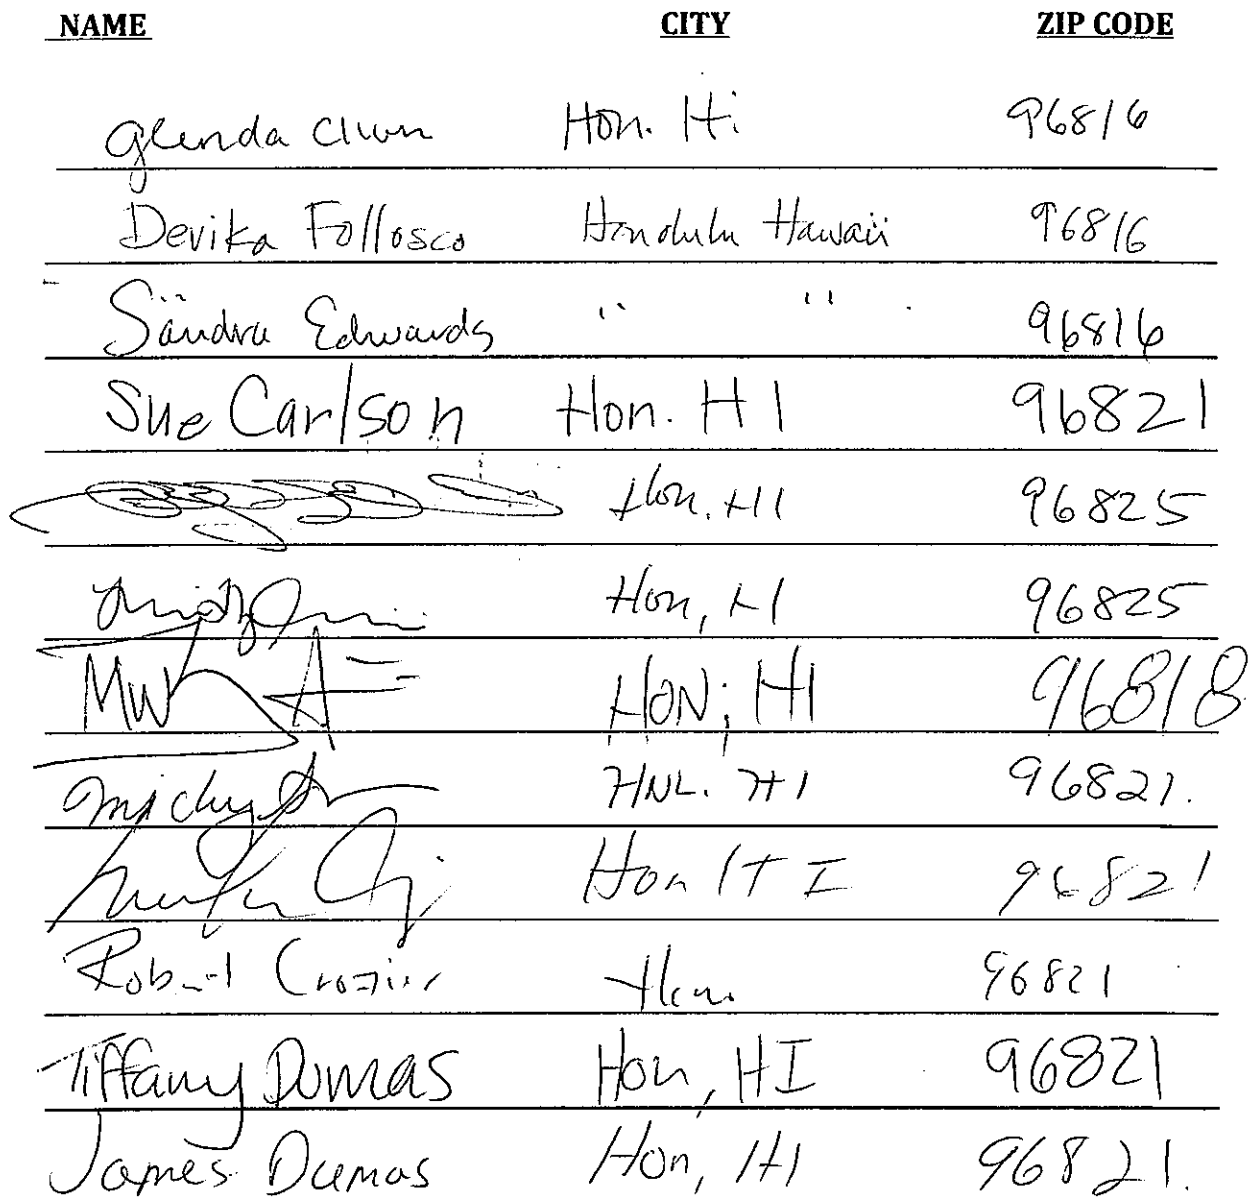 NAME CITY ZIP CODE
Glenda Chun Hon. Hi 96816
Devika Follosco Honolulu Hawaii 96816
Sandra Edwards " " 96816
Sue Carlson Hon. HI 96821
Hon. HI 96825
Hon, HI 96825
HON, HI 96818
HNL. HI 96821.
Hon HI 96821
Robert Crozier Hon. 96821
Tiffany Dumas Hon, HI 96821
James Dumas Hon, HI 96821.